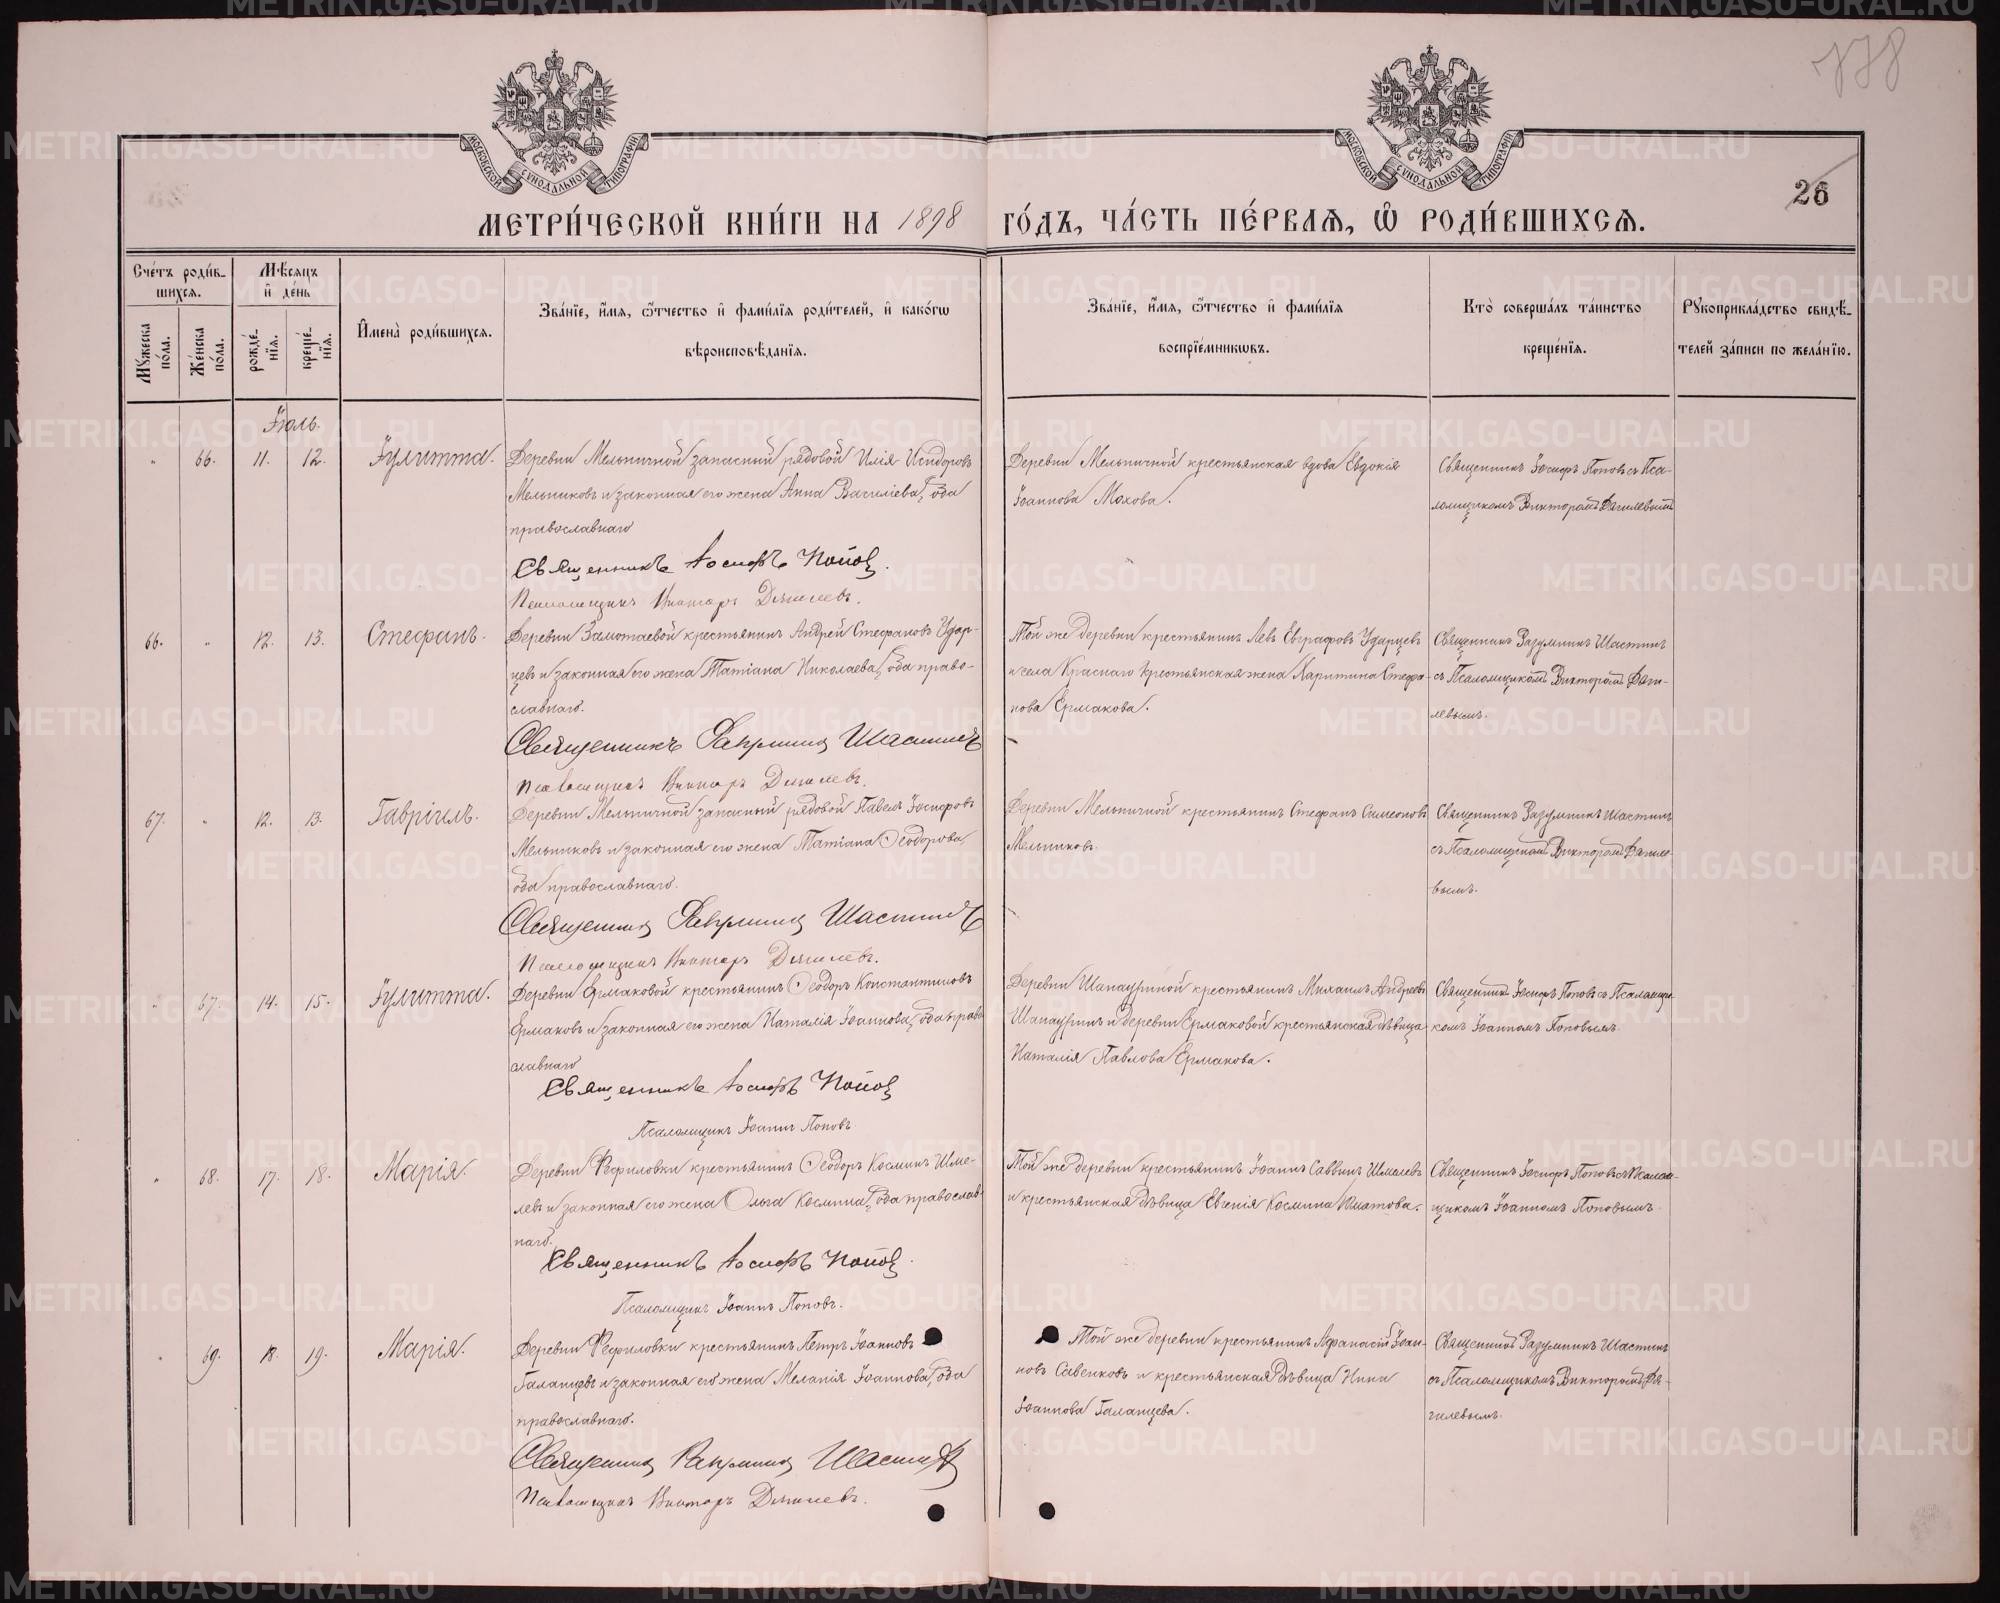 178
26
МОСКОВСКОЙ СѴНОДАЛЬНОЙ ТИПОГРАФІИ
МОСКОВСКОЙ СѴНОДАЛЬНОЙ ТИПОГРАФІИ
МЕТРИ́ЧЕСКОЙ КНИ́ГИ НА 1898 ГО́ДЪ, ЧА́СТЬ ПЕ́РВАѦ, Ѡ҆ РОДИ́ВШИХСѦ.
Сче́тъ роди́в-
шихсѧ.
Мꙋ́жеска по́ла.
Же́нска по́ла.
Мѣ́сѧцъ
и҆ де́нь
рожде́-
нїѧ.
креще́-
нїѧ.
И҆мена̀ роди́вшихсѧ.
Зва́нїе, и҆́мѧ, ѻ҆́тчество и҆ фами́лїѧ роди́телей, и҆ како́гѡ
вѣроисповѣ́данїѧ.
Зва́нїе, и҆́мѧ, ѻ҆́тчество и҆ фами́лїѧ
воспрїе́мникѡвъ.
Кто̀ соверша́лъ та́инство
креще́нїѧ.
Рꙋкоприкла́дство свидѣ́-
телей за́писи по жела́нїю.
Іюль.
" 66. 11. 12. Іулитта.
Деревни Мельничной запасный рядовой Илія Исидоровъ
Мельниковъ и законная его жена Анна Василіева, оба
православнаго
Священникъ Іосифъ Поповъ.
Псаломщикъ Викторъ Дягилевъ.
Деревни Мельничной крестьянская вдова Евдокія
Іоаннова Мохова.
Священникъ Іосифъ Поповъ съ Пса-
ломщикомъ Викторомъ Дягилевымъ
66. " 12. 13. Стефанъ.
Деревни Замотаевой крестьянинъ Андрей Стефановъ Удар-
цевъ и законная его жена Татіана Николаева, оба право-
славнаго.
Священникъ Разумникъ Шастинъ
Псаломщикъ Викторъ Дягилевъ.
Той же деревни крестьянинъ Левъ Евграфовъ Ударцевъ
и села Краснаго крестьянская жена Харитина Стефа-
нова Ермакова.
Священникъ Разумникъ Шастинъ
съ Псаломщикомъ Викторомъ Дяги-
левымъ.
67. " 12. 13. Гавріилъ.
Деревни Мельничной запасный рядовой Павелъ Іосифовъ
Мельниковъ и законная его жена Татіана Ѳеодорова,
оба православнаго.
Священникъ Разумникъ Шастинъ
Псаломщикъ Викторъ Дягилевъ.
Деревни Мельничной крестьянинъ Стефанъ Симеоновъ
Мельниковъ.
Священникъ Разумникъ Шастинъ
съ Псаломщикомъ Викторомъ Дягиле-
вымъ.
" 67. 14. 15. Іулитта.
Деревни Ермаковой крестьянинъ Ѳеодоръ Константиновъ
Ермаковъ и законная его жена Наталія Іоаннова, оба право-
славнаго
Священникъ Іосифъ Поповъ
Псаломщикъ Іоаннъ Поповъ
Деревни крестьянинъ Михаилъ Андреевъ
и деревни Ермаковой крестьянская дѣвица
Наталія Павлова Ермакова.
Священникъ Іосифъ Поповъ съ Псаломщи-
комъ Іоанномъ Поповымъ.
" 68. 17. 18. Марія.
Деревни крестьянинъ Ѳеодоръ Косминъ Шме-
левъ и законная его жена Ольга Космина, оба православ-
наго.
Священникъ Іосифъ Поповъ.
Псаломщикъ Іоаннъ Поповъ.
Той же деревни крестьянинъ Іоаннъ Саввинъ Шмелевъ
и крестьянская дѣвица Евгенія Космина
Священникъ Іосифъ Поповъ съ Псалом-
щикомъ Іоанномъ Поповымъ.
" 69. 18. 19. Марія.
Деревни крестьянинъ Петръ Іоанновъ
Галанцевъ и законная его жена Меланія Іоаннова, оба
православнаго.
Священникъ Разумникъ Шастинъ
Псаломщикъ Викторъ Дягилевъ.
Той же деревни крестьянинъ Аѳанасій Іоан-
новъ Савенковъ и крестьянская дѣвица Нина
Іоаннова Галанцева.
Священникъ Разумникъ Шастинъ
съ Псаломщикомъ Викторомъ Дя-
гилевымъ.
METRIKI.GASO-URAL.RU